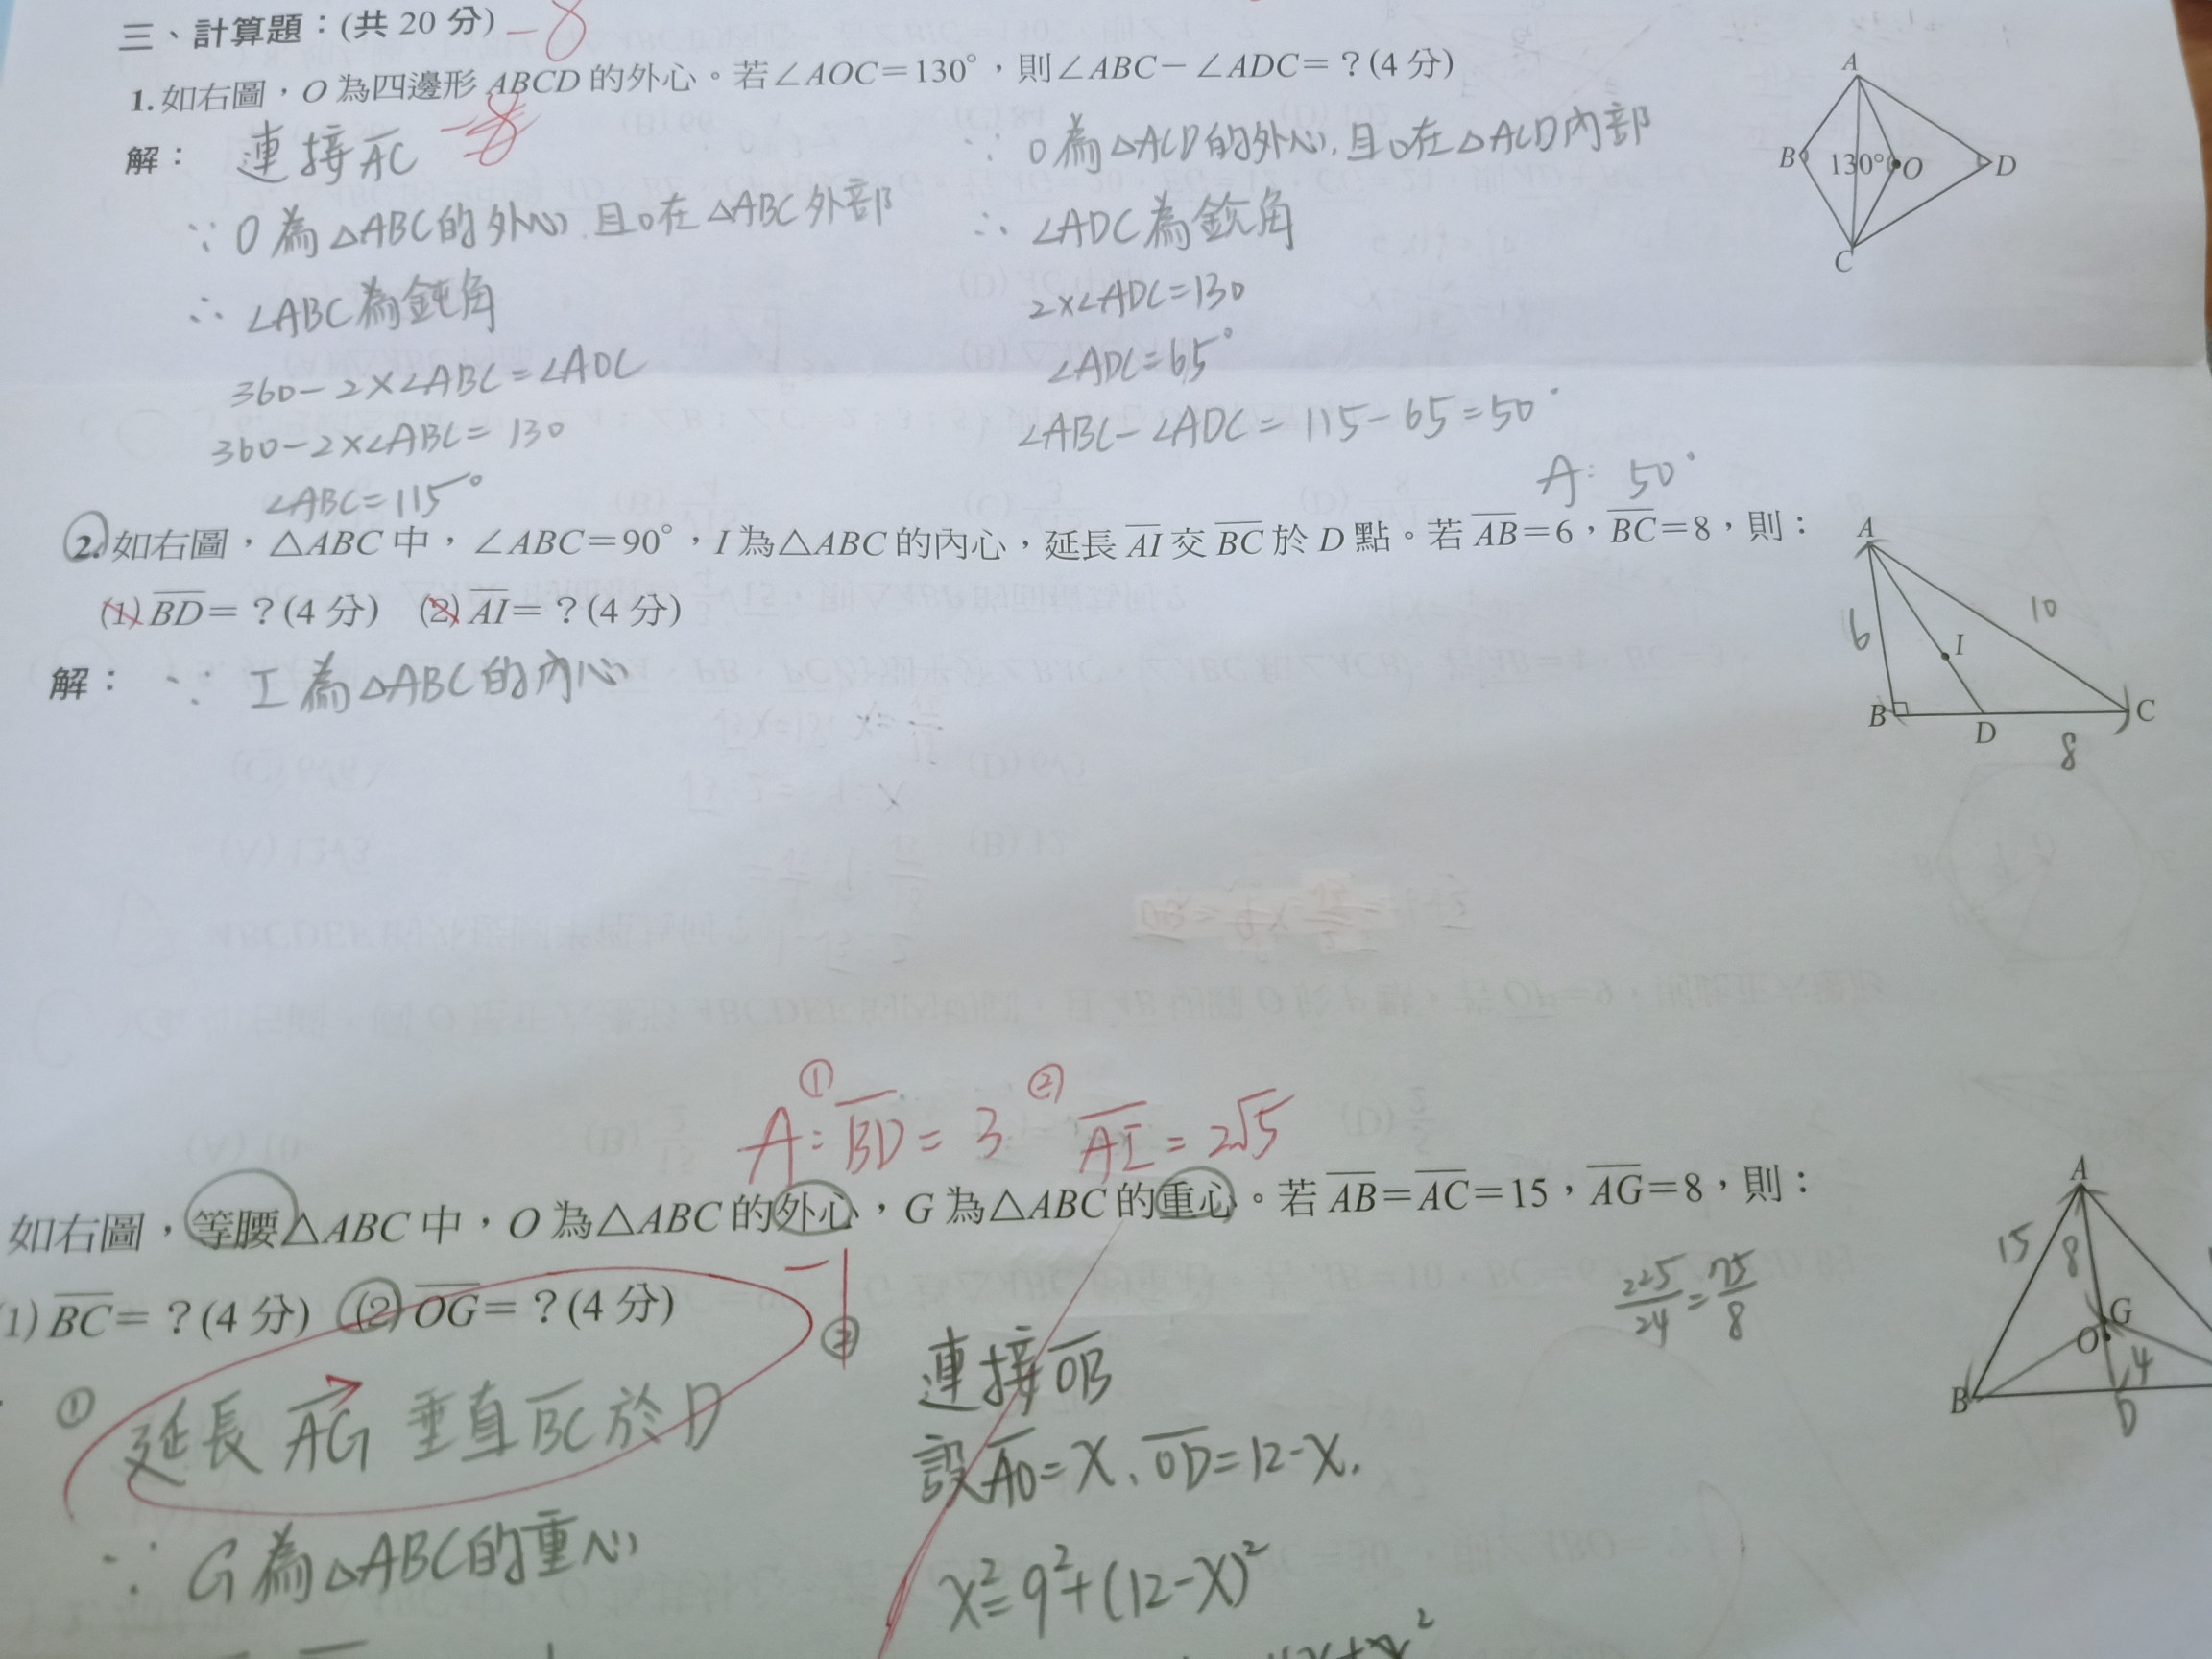 三、計算題：(共 20 分) -8
1. 如右圖，O 為四邊形 ABCD 的外心。若∠AOC＝130°，則∠ABC－∠ADC＝？(4 分)
解：連接AC
∵ O為△ABC的外心,且O在△ABC外部
∴ ∠ABC為鈍角
360-2×∠ABC=∠AOC
360-2×∠ABC=130
∠ABC=115°
∵ O為△ACD的外心,且O在△ACD內部
∴ ∠ADC為銳角
2×∠ADC=130
∠ADC=65°
∠ABC-∠ADC=115-65=50°
A: 50°
A
B
130°
O
D
C
2. 如右圖，△ABC 中，∠ABC＝90°，I 為△ABC 的內心，延長 AI 交 BC 於 D 點。若 AB＝6，BC＝8，則：
(1) BD＝？(4 分) (2) AI＝？(4 分)
解：∵ I為△ABC的內心
A
6
10
I
B
D
C
8
① ②
A: BD=3 AI=2√5
如右圖，等腰△ABC 中，O 為△ABC 的外心，G 為△ABC 的重心。若 AB＝AC＝15，AG＝8，則：
(1) BC＝？(4 分) (2) OG＝？(4 分)
-1
① 延長 AG 垂直 BC 於 D
∵ G為△ABC的重心
② 連接OB
設AO=X, OD=12-X,
X²=9²+(12-X)²
225/24=75/8
A
15
8
G
O
4
B
D